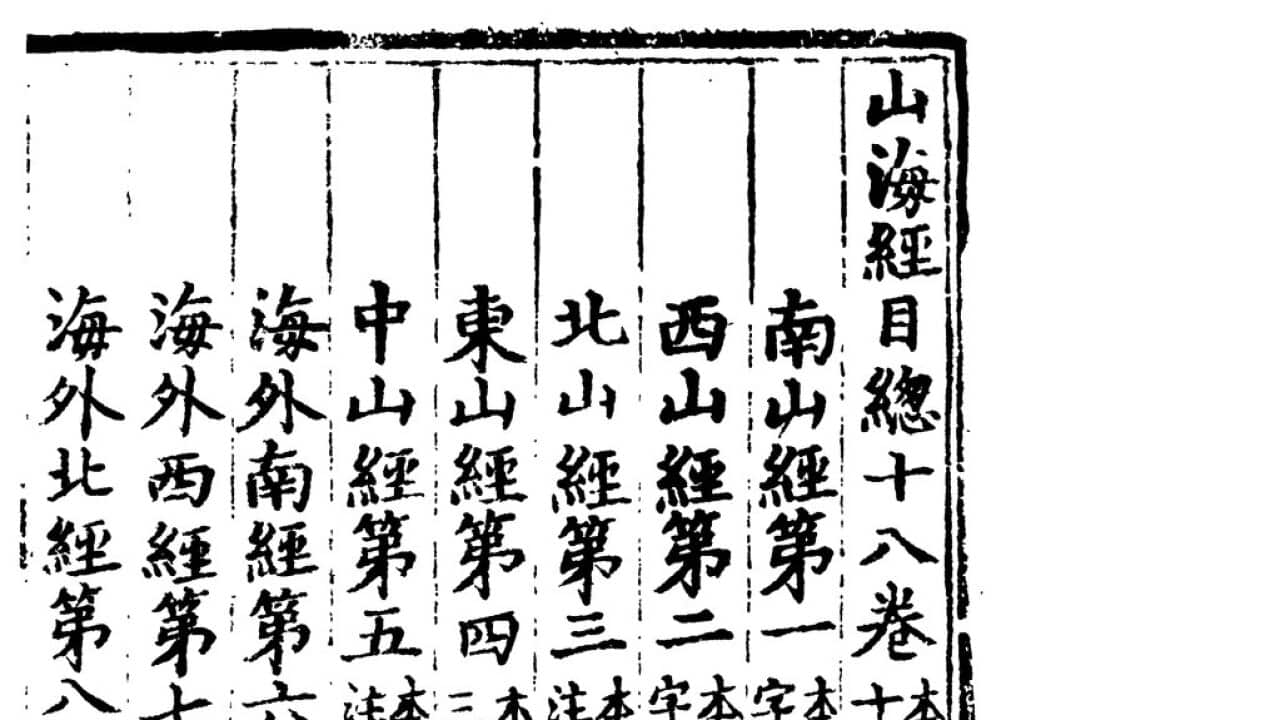 山海經目總十八卷
南山經第一
西山經第二
北山經第三
東山經第四
中山經第五
海外南經第六
海外西經第七
海外北經第八